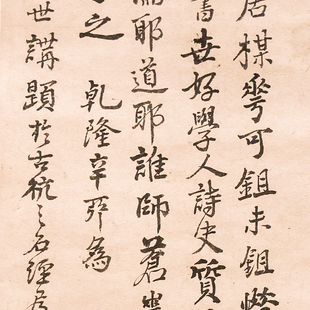 居楳㠭可鉏未鉏
書世好學人詩史質
耶道耶誰師蒼
之 乾隆辛卯為
世講題於古杭之名經